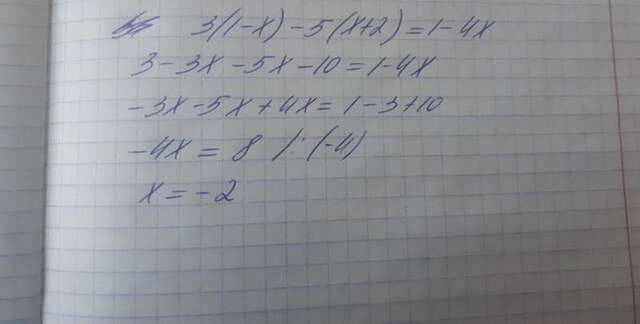 3(1-x)-5(x+2)=1-4x
3-3x-5x-10=1-4x
-3x-5x+4x=1-3+10
-4x=8 /:(-4)
x=-2